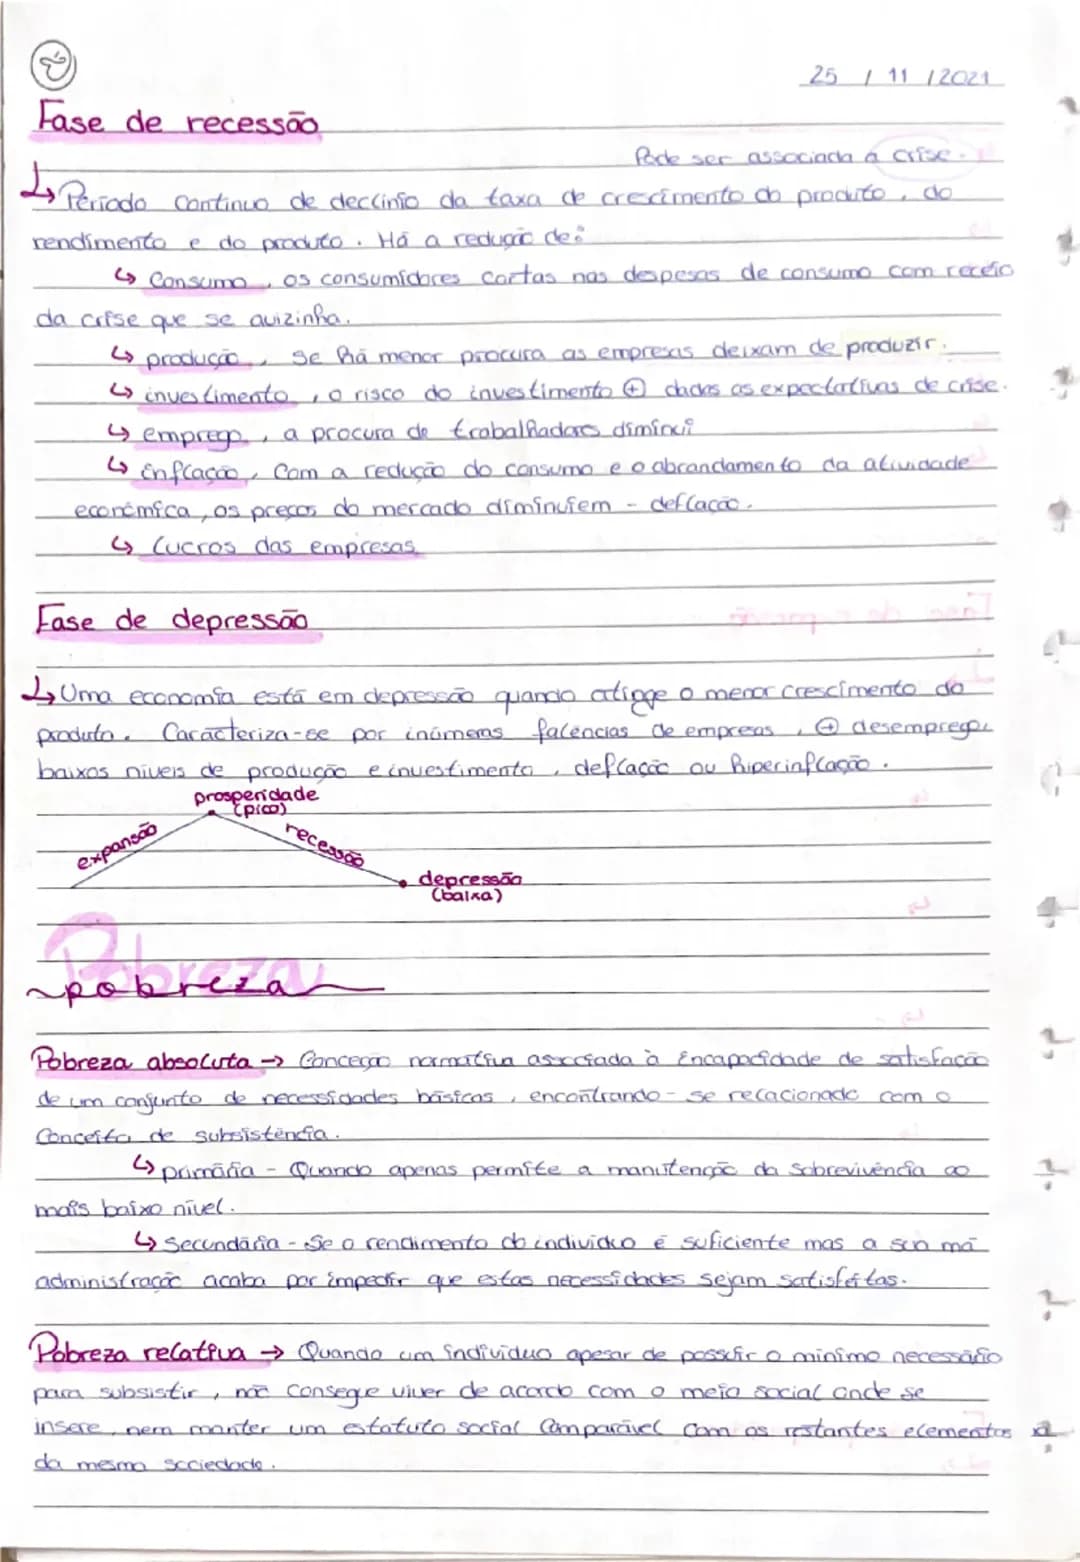 25 / 11 / 2021
Fase de recessão
Pode ser associada á crise.
↳ Período contínuo de declínio da taxa de crescimento do produto, do
rendimento e do produto. Há a redução de:
↳ Consumo, os consumidores cortas nas despesas de consumo com receio
da crise que se avizinha.
↳ produção, se há menor procura as empresas deixam de produzir.
↳ investimento, o risco do investimento ⊕ dadas as expectativas de crise.
↳ emprego, a procura de trabalhadores diminui
↳ inflação, com a redução do consumo e o abrandamento da atividade
económica, os preços do mercado diminuiem - deflação.
↳ lucros das empresas
Fase de depressão
↳ Uma economia está em depressão quando atinge o menor crescimento do
produto. Caracteriza-se por inúmeras falências de empresas, ⊕ desemprego
baixos níveis de produção e investimento, deflação ou hiperinflação.
prosperidade
(pico)
expansão
recessão
depressão
(baixa)
Pobreza
pobreza
Pobreza absoluta → Conceção normativa associada à incapacidade de satisfação
de um conjunto de necessidades básicas, encontrando-se relacionado com o
conceito de subsistência.
↳ primária - Quando apenas permite a manutenção da sobrevivência ao
mais baixo nível.
↳ Secundária - Se o rendimento do indivíduo é suficiente mas a sua má
administração acaba por impedir que estas necessidades sejam satisfeitas.
Pobreza relativa → Quando um indivíduo apesar de possuir o mínimo necessário
para subsistir, não consegue viver de acordo com o meio social onde se
insere, nem manter um estatuto social comparável com os restantes elementos
da mesma sociedade.